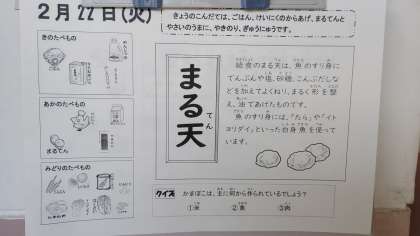 2月22日(火)
きょうのこんだては、ごはん、けいにくのからあげ、まるてんと
やさいのうまに、やきのり、ぎゅうにゅうです。
きのたべもの
あかのたべもの
まるてん
みどりのたべもの
まる天
てん
給食のまる天は、魚のすり身に
でんぷんや塩、砂糖、こんぶだしな
どを加えてよくねり、まるく形を整
え、油であげたものです。
魚のすり身には、“たら”や“イト
ヨリダイ”といった白身魚を使って
います。
クイズ
かまぼこは、主に何から作られているでしょう?
①米 ②魚 ③肉